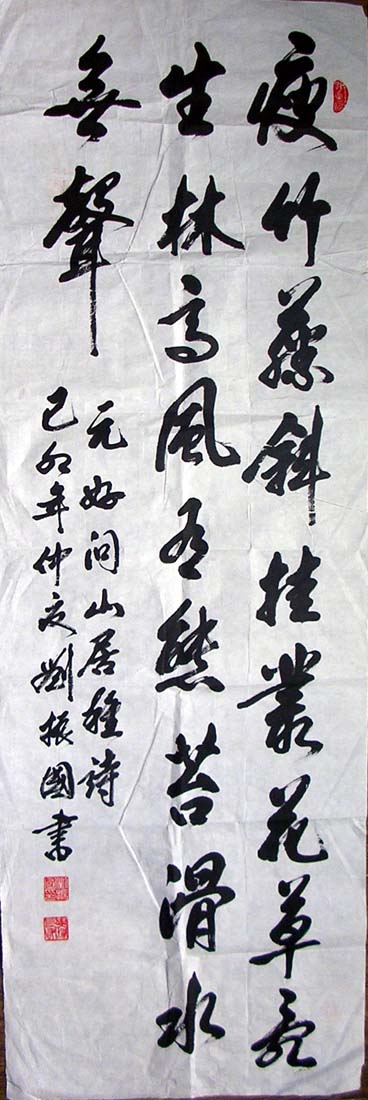 瘦竹藤斜挂叢花草亂
生林高風有態苔滑水
無聲
元好问山居雜詩
己卯年仲夏劉振國書